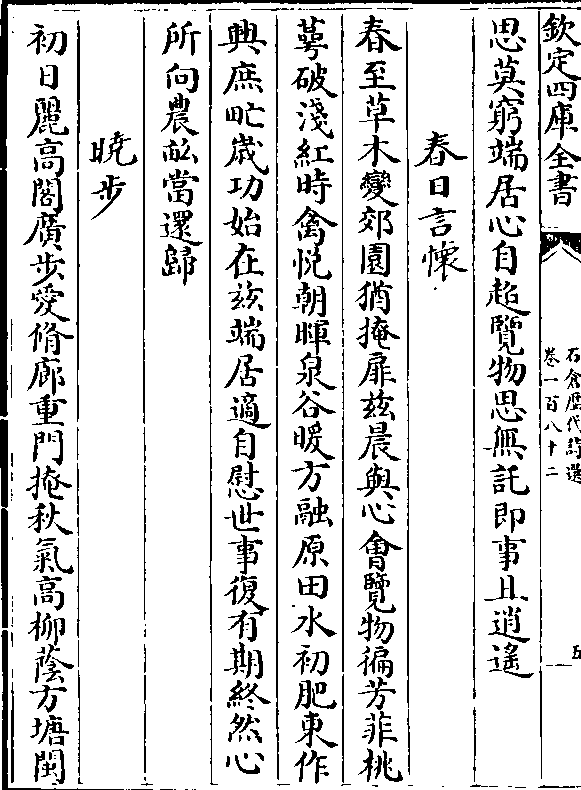 欽定四庫全書
石倉歷代詩選
卷一百八十二
五
思莫窮端居心自超覽物思無託即事且逍遙
春日言懷
春至草木變郊園猶掩扉茲晨與心會覽物徧芳菲桃
萼破淺紅時禽悦朝暉泉谷暖方融原田水初肥東作
興庶甿歲功始在茲端居適自慰世事復有期終然心
所向農畝當還歸
曉步
初日麗高閣廣步愛脩廊重門掩秋氣高柳蔭方塘閒